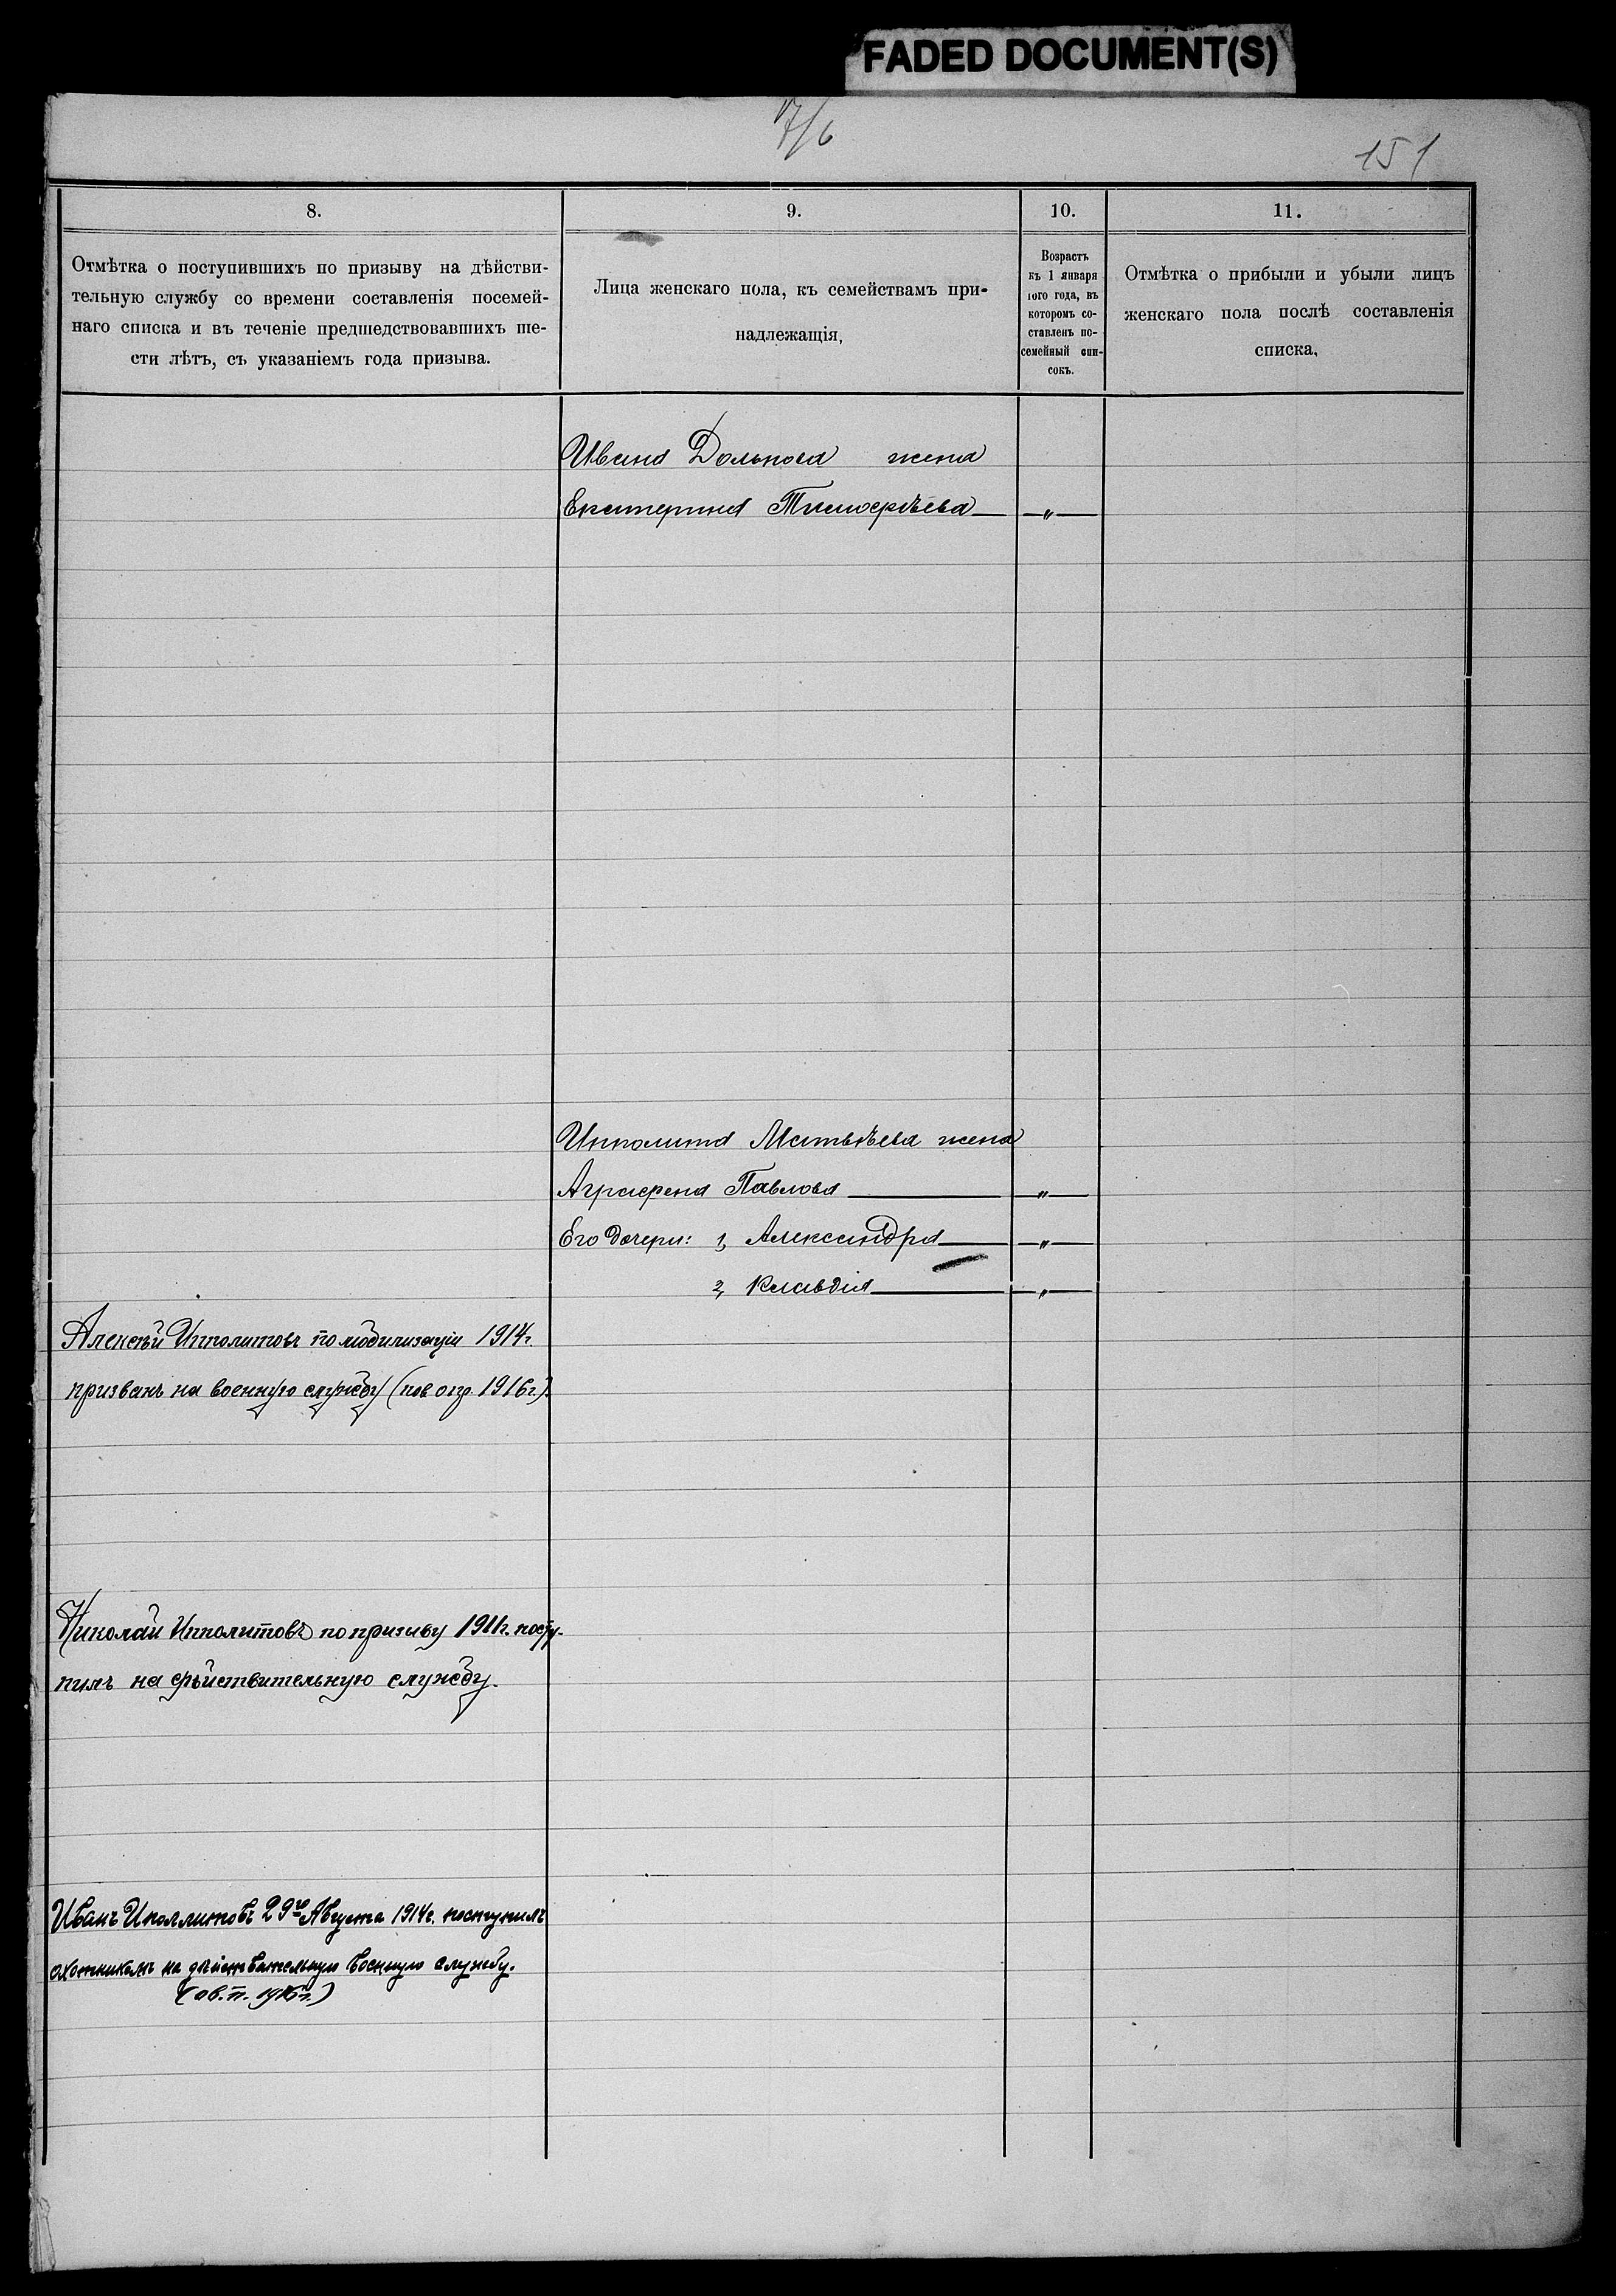 FADED DOCUMENT(S)
7/6
151
8.
9.
10.
11.
Отмѣтка о поступившихъ по призыву на дѣйстви-
тельную службу со времени составленія посемей-
наго списка и въ теченіе предшедствовавшихъ ше-
сти лѣтъ, съ указаніемъ года призыва.
Лица женскаго пола, къ семействамъ при-
надлежащія,
Возрастъ
къ 1 января
того года, въ
которомъ со-
ставленъ по-
семейный спи-
сокъ.
Отмѣтка о прибыли и убыли лицъ
женскаго пола послѣ составленія
списка,
Ивана жена
Екатерина Тимоѳѣева — „ —
Ипполита Матвѣева жена
Аграфена Павлова — „ —
Его дочери: 1, Александра — „ —
2, Клавдія — „ —
Алексѣй Ипполитовъ по мобилизаціи 1914г.
призванъ на военную службу 1916г.)
Николай Ипполитовъ по призыву 1911г. посту-
пилъ на дѣйствительную службу.
Иванъ Иполлитовъ 29го Августа 1914г. поступилъ
охотникомъ на дѣйствительную военную службу.